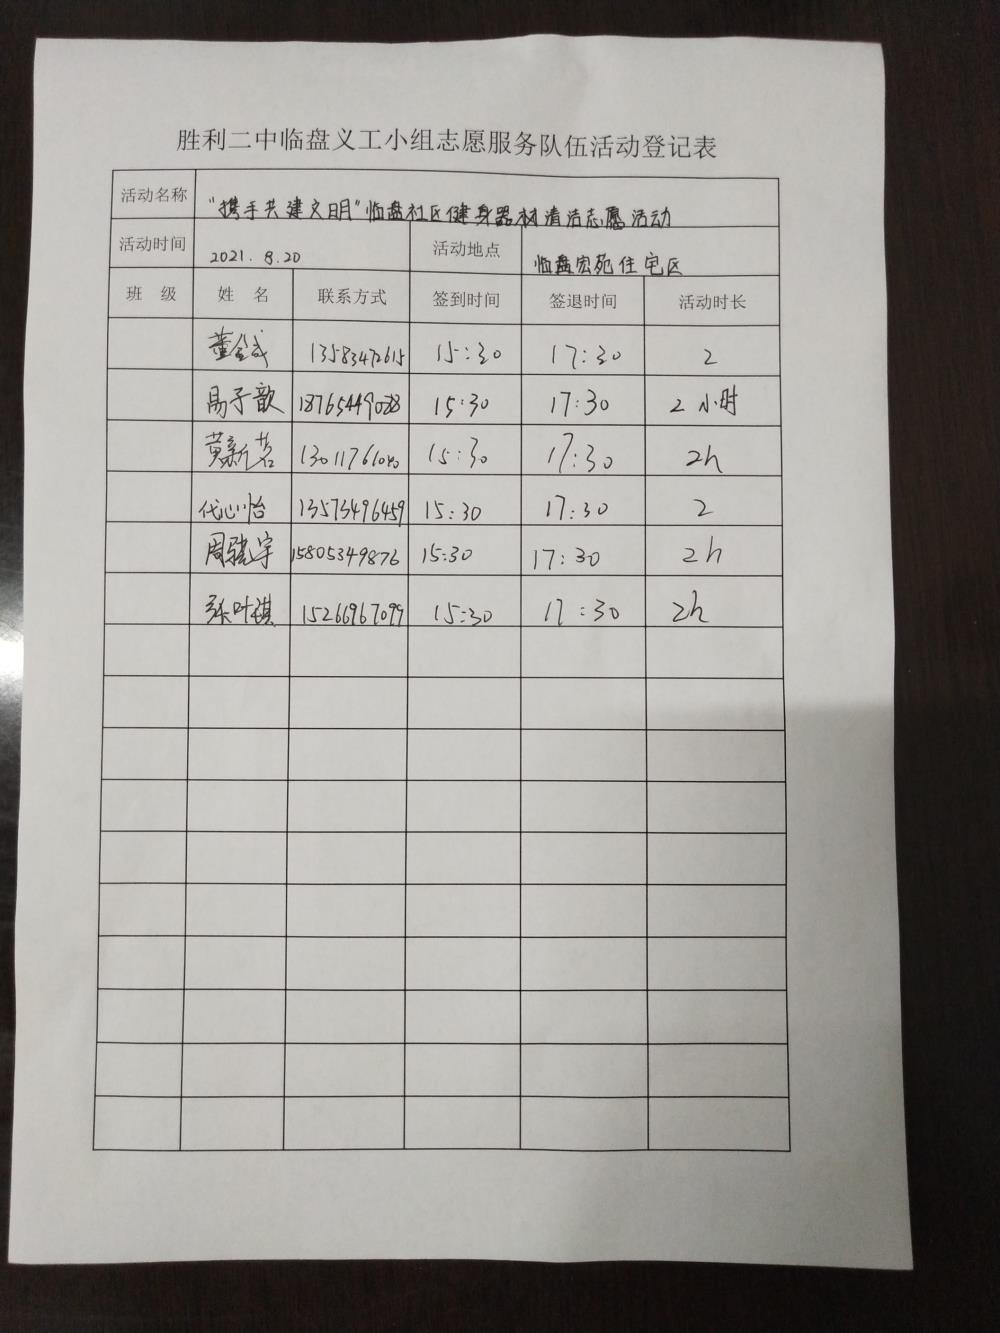 胜利二中临盘义工小组志愿服务队伍活动登记表
活动名称 "携手共建文明"临盘社区健身器材清洁志愿活动
活动时间 2021.8.20 活动地点 临盘宏苑住宅区
班 级 姓 名 联系方式 签到时间 签退时间 活动时长
董金成 13583472615 15:30 17:30 2
易子歆 18765449028 15:30 17:30 2小时
黄新茗 13011761040 15:30 17:30 2h
代心怡 13573496459 15:30 17:30 2
周骁宇 15805349876 15:30 17:30 2h
张叶祺 15266967099 15:30 17:30 2h